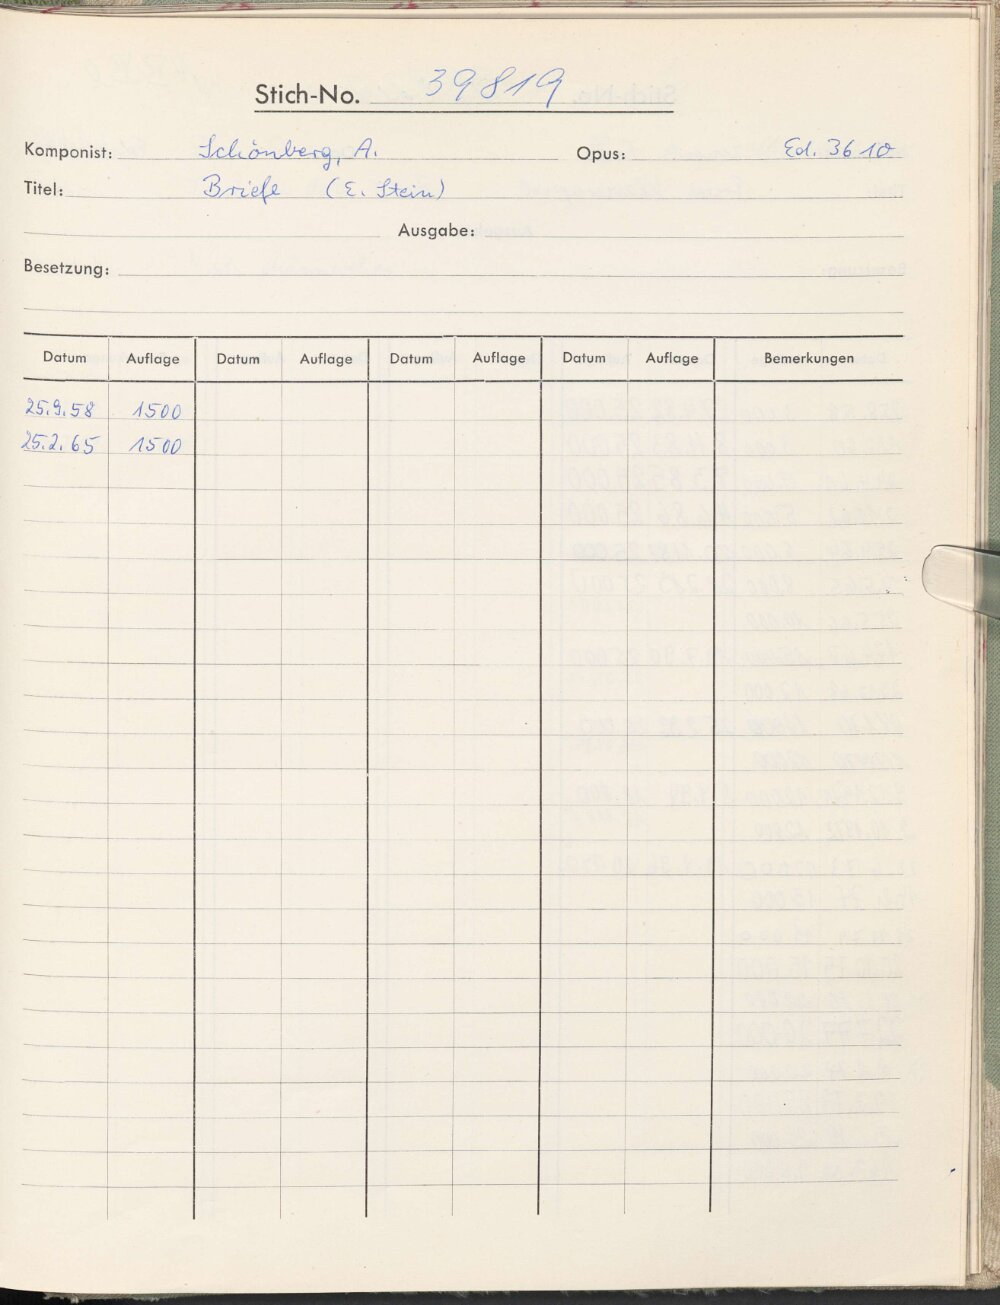 Stich-No. 39819
Komponist: Schönberg, A. Opus: Ed. 3610
Titel: Briefe (E. Stein)
Ausgabe:
Besetzung:
Datum Auflage Datum Auflage Datum Auflage Datum Auflage Bemerkungen
25.9.58 1500
25.2.65 1500